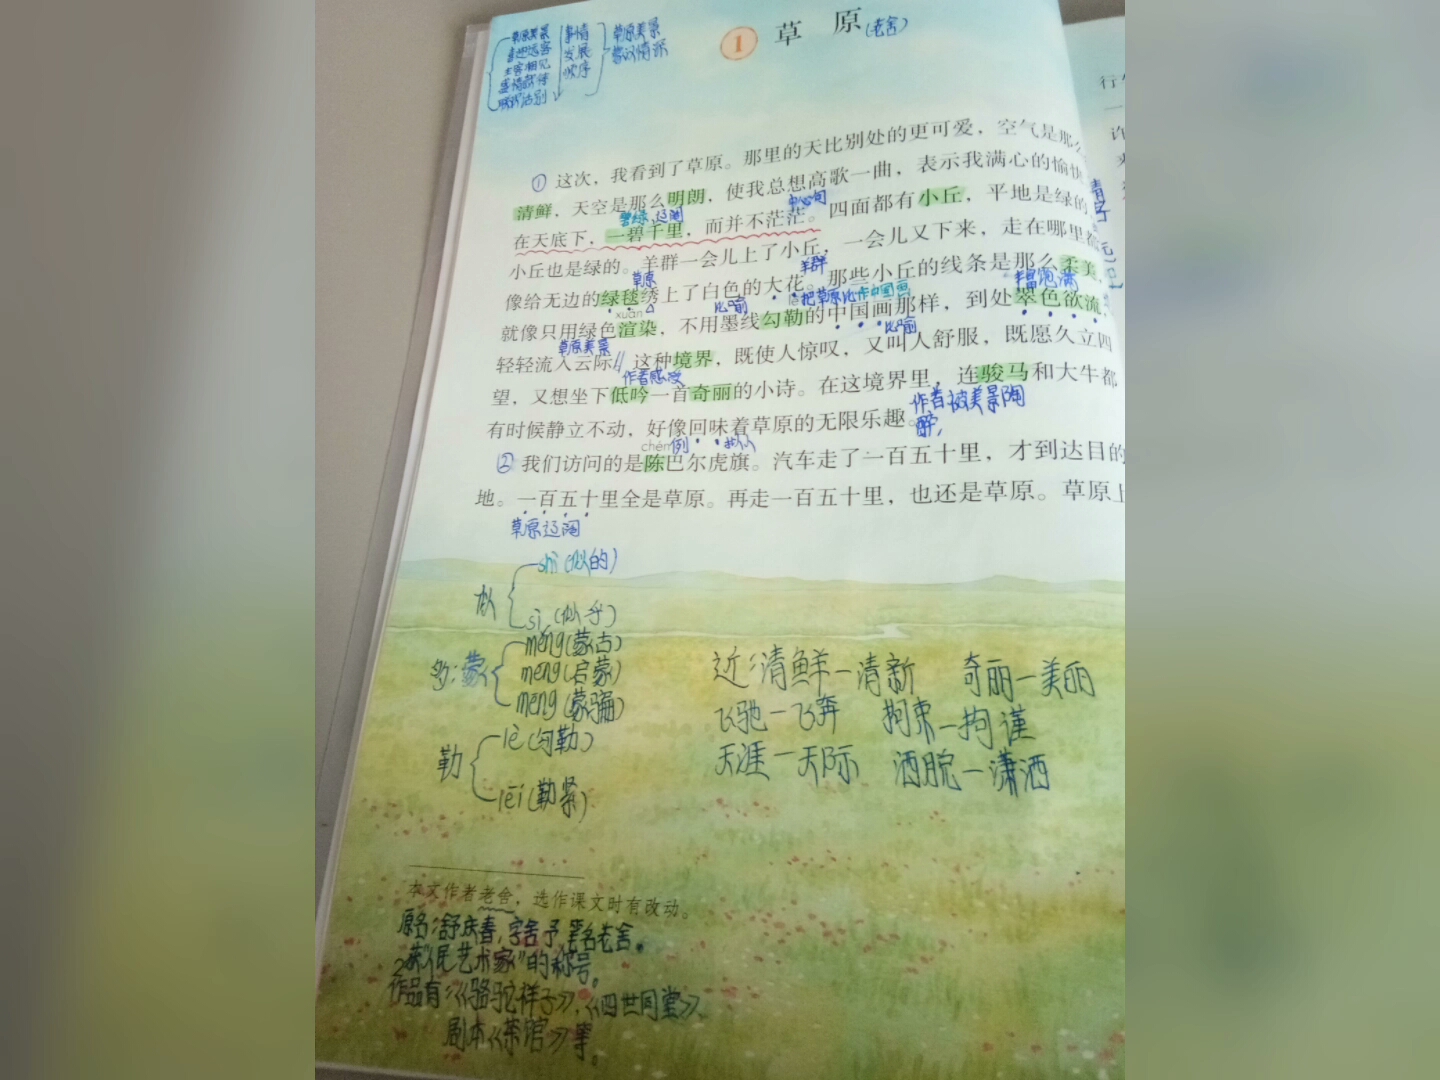 草原美景
喜迎远客
主客相见
盛情款待
话别
事情
发展
顺序
草原美景
蒙汉情深
1 草 原(老舍)
①这次，我看到了草原。那里的天比别处的更可爱，空气是那么
清鲜，天空是那么明朗，使我总想高歌一曲，表示我满心的愉快
碧绿 辽阔 中心句
在天底下，一碧千里，而并不茫茫。四面都有小丘，平地是绿的
小丘也是绿的。羊群一会儿上了小丘，一会儿又下来，走在哪里都
草原 羊群
像给无边的绿毯绣上了白色的大花。那些小丘的线条是那么柔美，
xuàn 比喻 lè 把草原比作中国画
就像只用绿色渲染，不用墨线勾勒的中国画那样，到处翠色欲流，
草原美景 比喻
轻轻流入云际//这种境界，既使人惊叹，又叫人舒服，既愿久立四
作者感受
望，又想坐下低吟一首奇丽的小诗。在这境界里，连骏马和大牛都
有时候静立不动，好像回味着草原的无限乐趣。作者被美景陶
醉，
chén 列 拟人
②我们访问的是陈巴尔虎旗。汽车走了一百五十里，才到达目的
地。一百五十里全是草原。再走一百五十里，也还是草原。草原上
草原辽阔
似 shì(似的)
sì(似乎)
多：蒙 měng(蒙古)
méng(启蒙)
mēng(蒙骗)
勒 lè(勾勒)
lēi(勒紧)
近：清鲜—清新 奇丽—美丽
飞驰—飞奔 拘束—拘谨
天涯—天际 洒脱—潇洒
本文作者老舍，选作课文时有改动。
原名：舒庆春，字舍予，笔名老舍。
获"人民艺术家"的称号。
作品有：《骆驼祥子》、《四世同堂》、
剧本《茶馆》等。